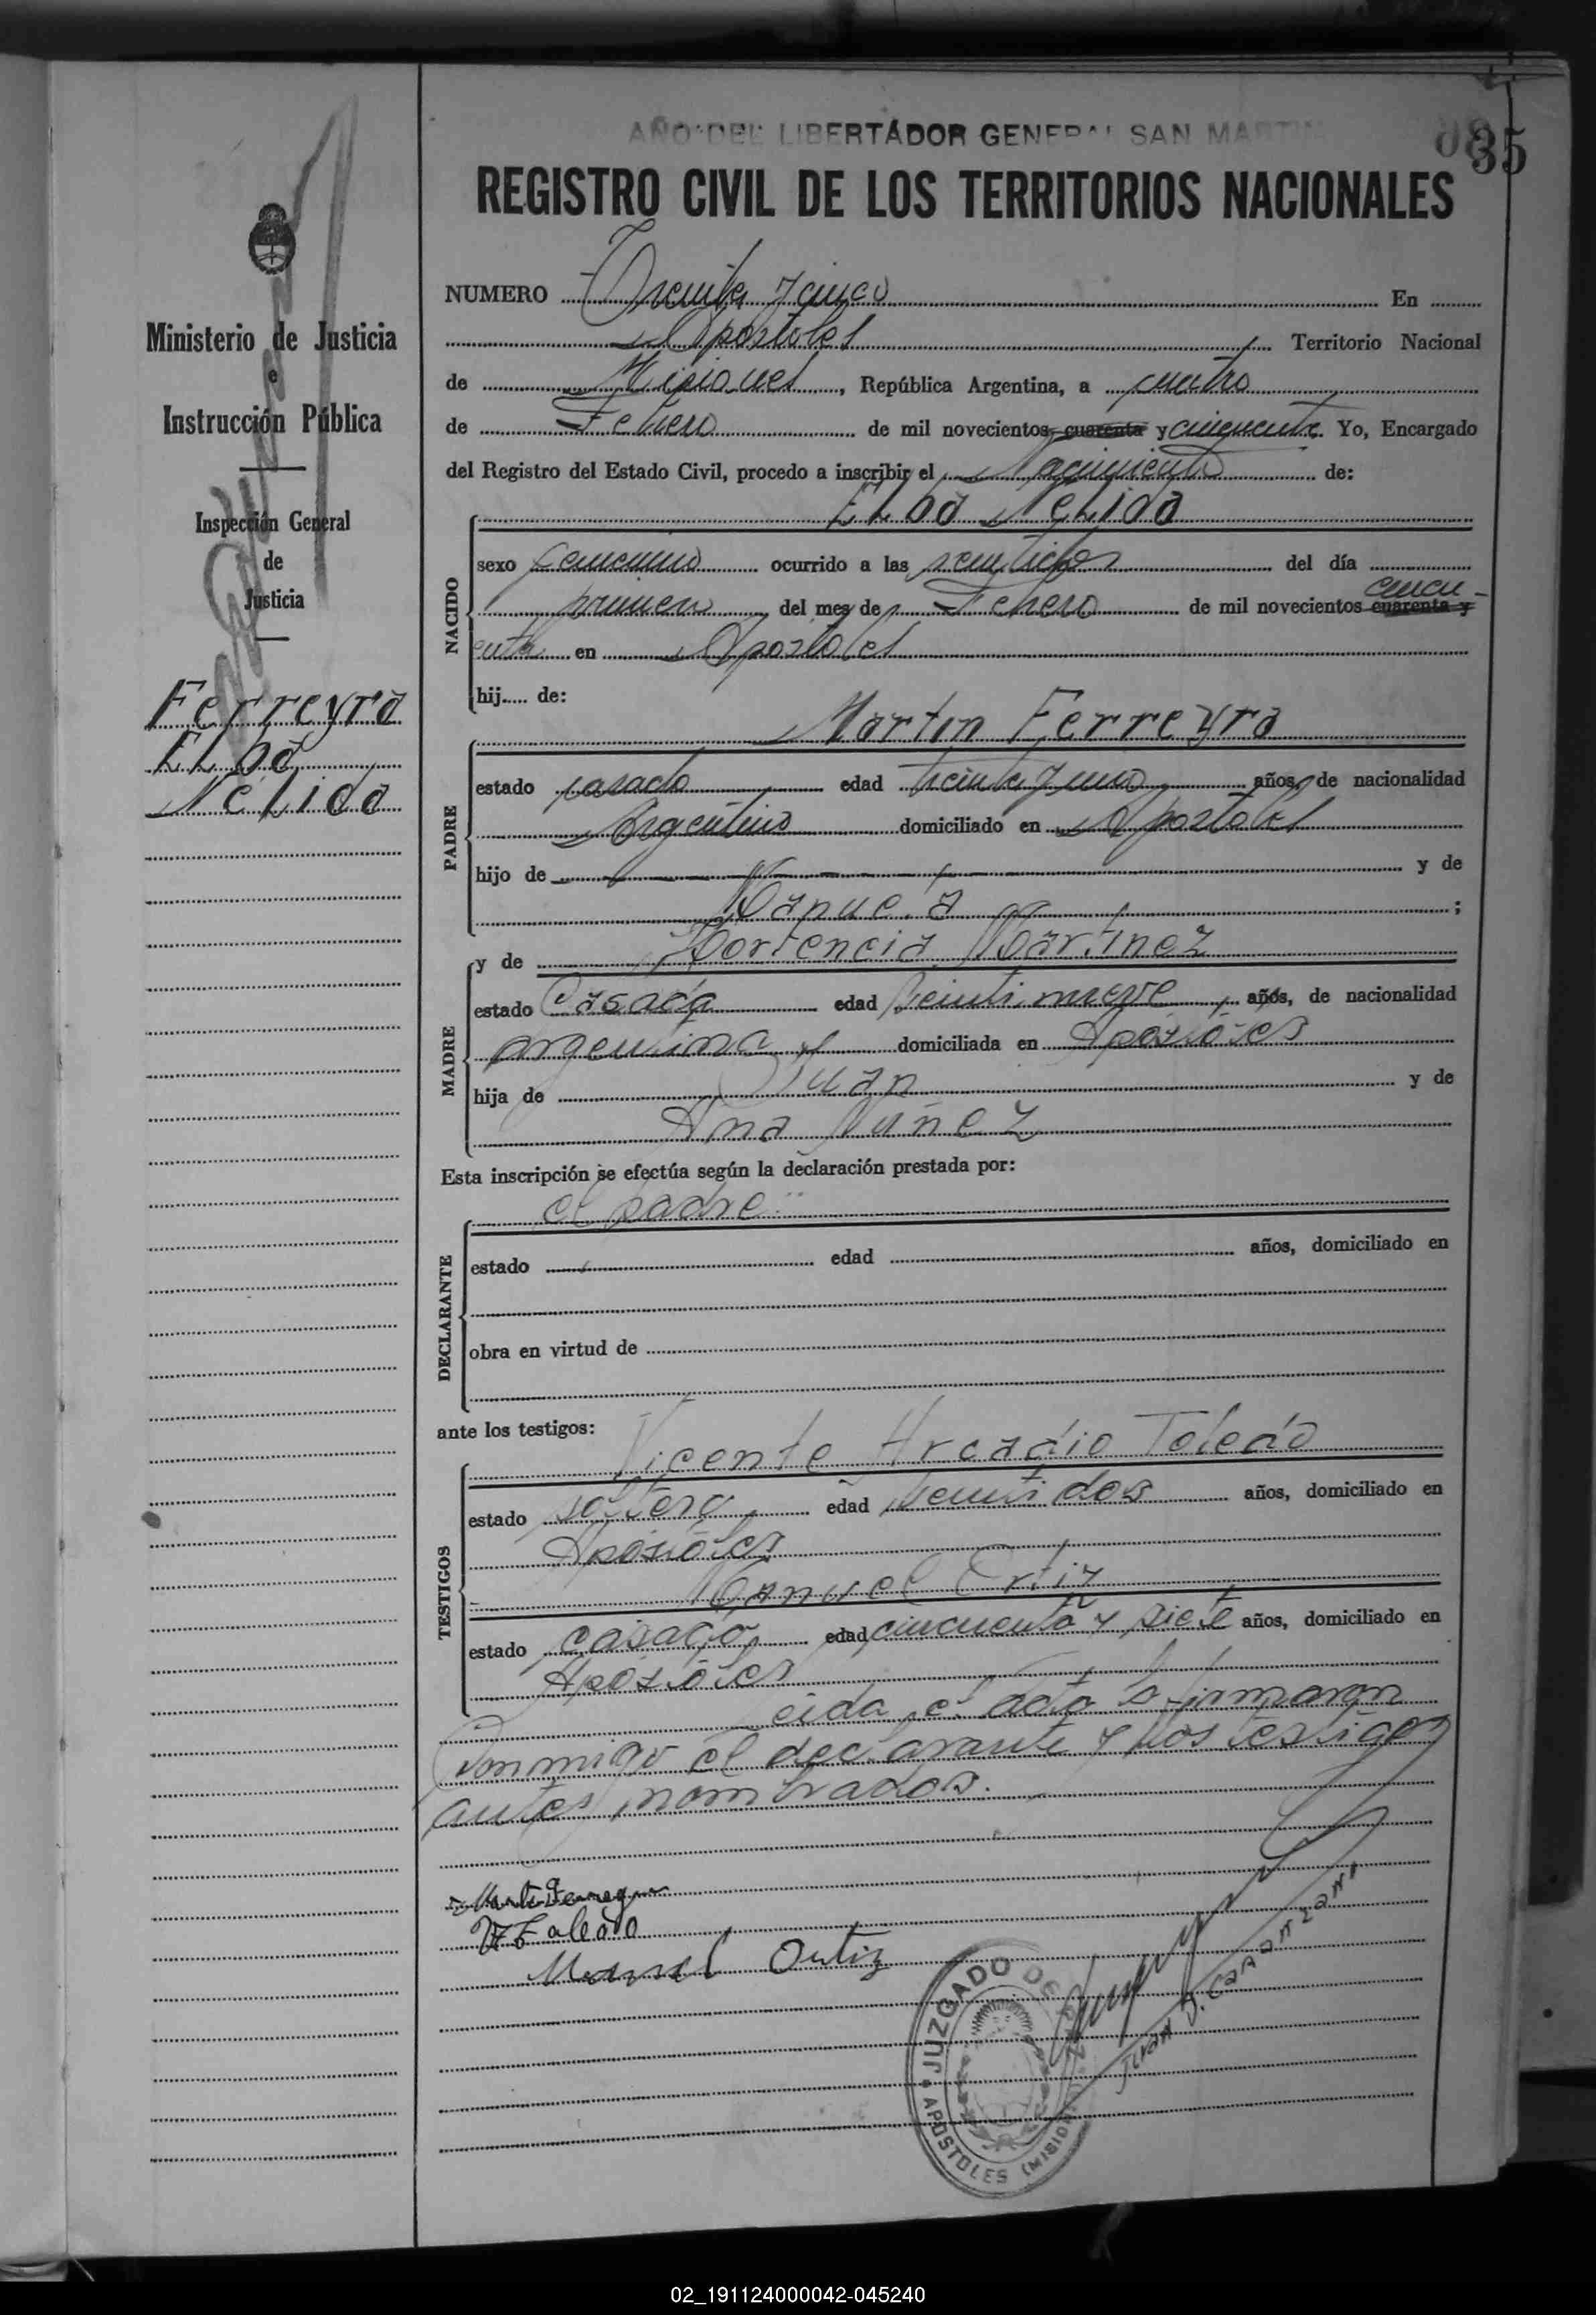 AÑO DEL LIBERTADOR GENERAL SAN MARTIN
35
REGISTRO CIVIL DE LOS TERRITORIOS NACIONALES
Ministerio de Justicia
e
Instrucción Pública
Inspección General
de
Justicia
Ferreyra
Elba
Nélida
NUMERO Treinta y cinco En
Apostoles Territorio Nacional
de Misiones, República Argentina, a cuatro
de Febrero de mil novecientos cuarenta y cincuenta. Yo, Encargado
del Registro del Estado Civil, procedo a inscribir el Nacimiento de:
NACIDO
Elba Nelida
sexo femenino ocurrido a las del día
primero del mes de Febrero de mil novecientos cuarenta y cincu-
enta en Apostoles
hij de:
PADRE
Martin Ferreyra
estado casado edad treinta y uno años, de nacionalidad
Argentino domiciliado en Apostoles
hijo de y de
Manuela;
MADRE
y de Hortencia Martinez
estado Casada edad veinti nueve años, de nacionalidad
argentina domiciliada en Apostoles
hija de Juan y de
Ana Nuñez
Esta inscripción se efectúa según la declaración prestada por:
DECLARANTE
el padre
estado edad años, domiciliado en
obra en virtud de
ante los testigos:
TESTIGOS
Vicente Arcadio Toledo
estado soltero edad veinti dos años, domiciliado en
Apostoles
Manuel Ortiz
estado casado edad cincuenta y siete años, domiciliado en
Apostoles
Leida el acta la firmaron
conmigo el declarante y los testigos
antes nombrados.
Martin Ferreyra
V A Toledo
Manuel Ortiz
JUZGADO DE PAZ
APOSTOLES (MISIONES)
02_191124000042-045240